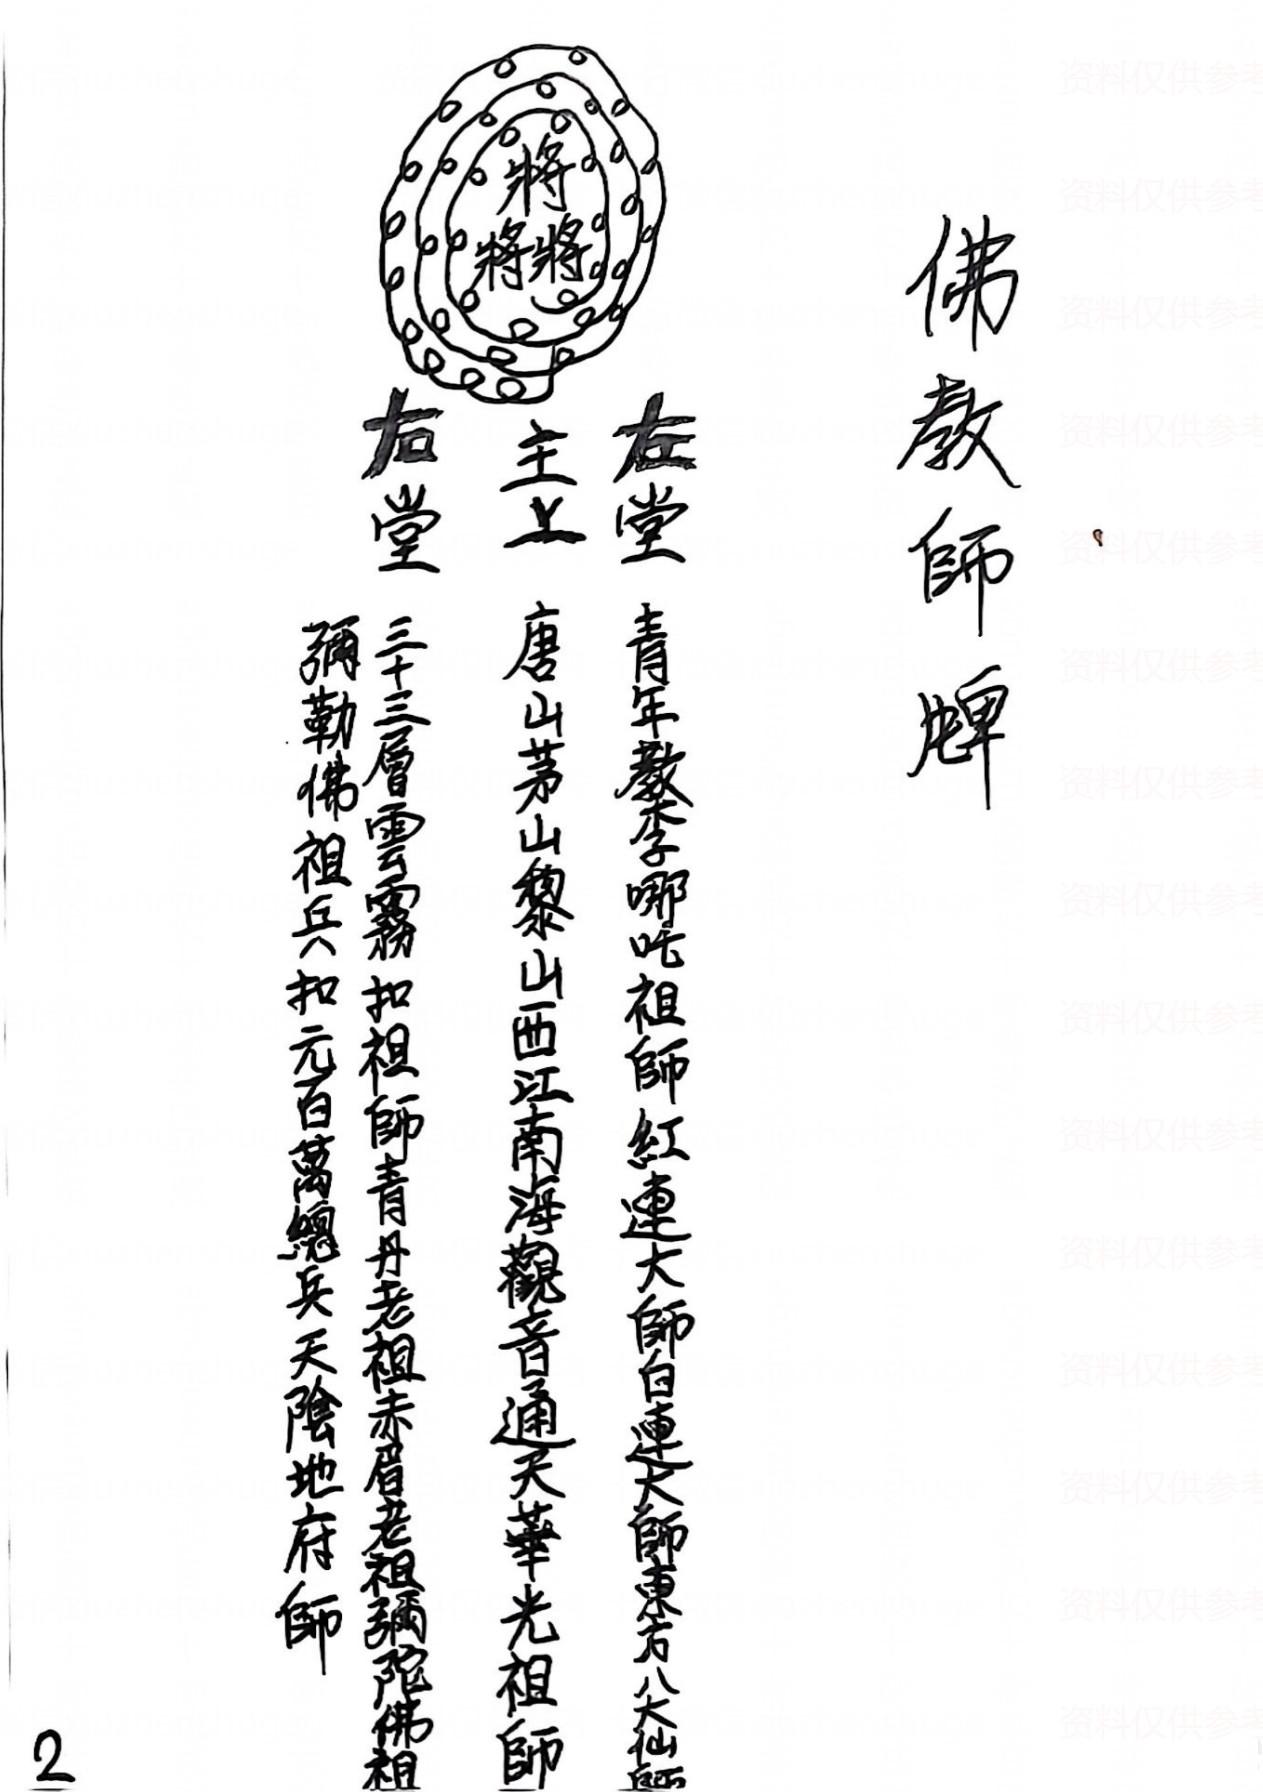 佛教師牌
將
將將
左堂
青年教李哪吒祖師紅連大師白連大師東方八大仙師
主上
唐山茅山黎山西江南海觀音通天華光祖師
右堂
三十三層雲霧扣祖師青丹老祖赤眉老祖彌陀佛祖
彌勒佛祖兵扣元百萬總兵天陰地府師
2
资料仅供参考